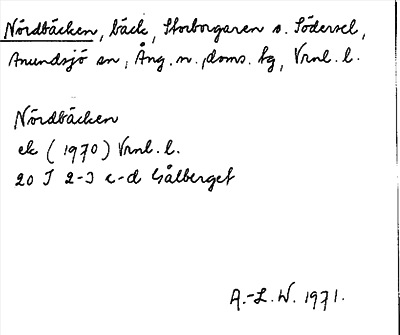 Nördbäcken, bäck, Storborgaren o. Södersel,
Anundsjö sn, Ång. n. doms. tg, Vrnl. l.
Nördbäcken
ek (1970) Vrnl. l.
20 J 2-3 c-d Gålberget
A.-L. W. 1971.